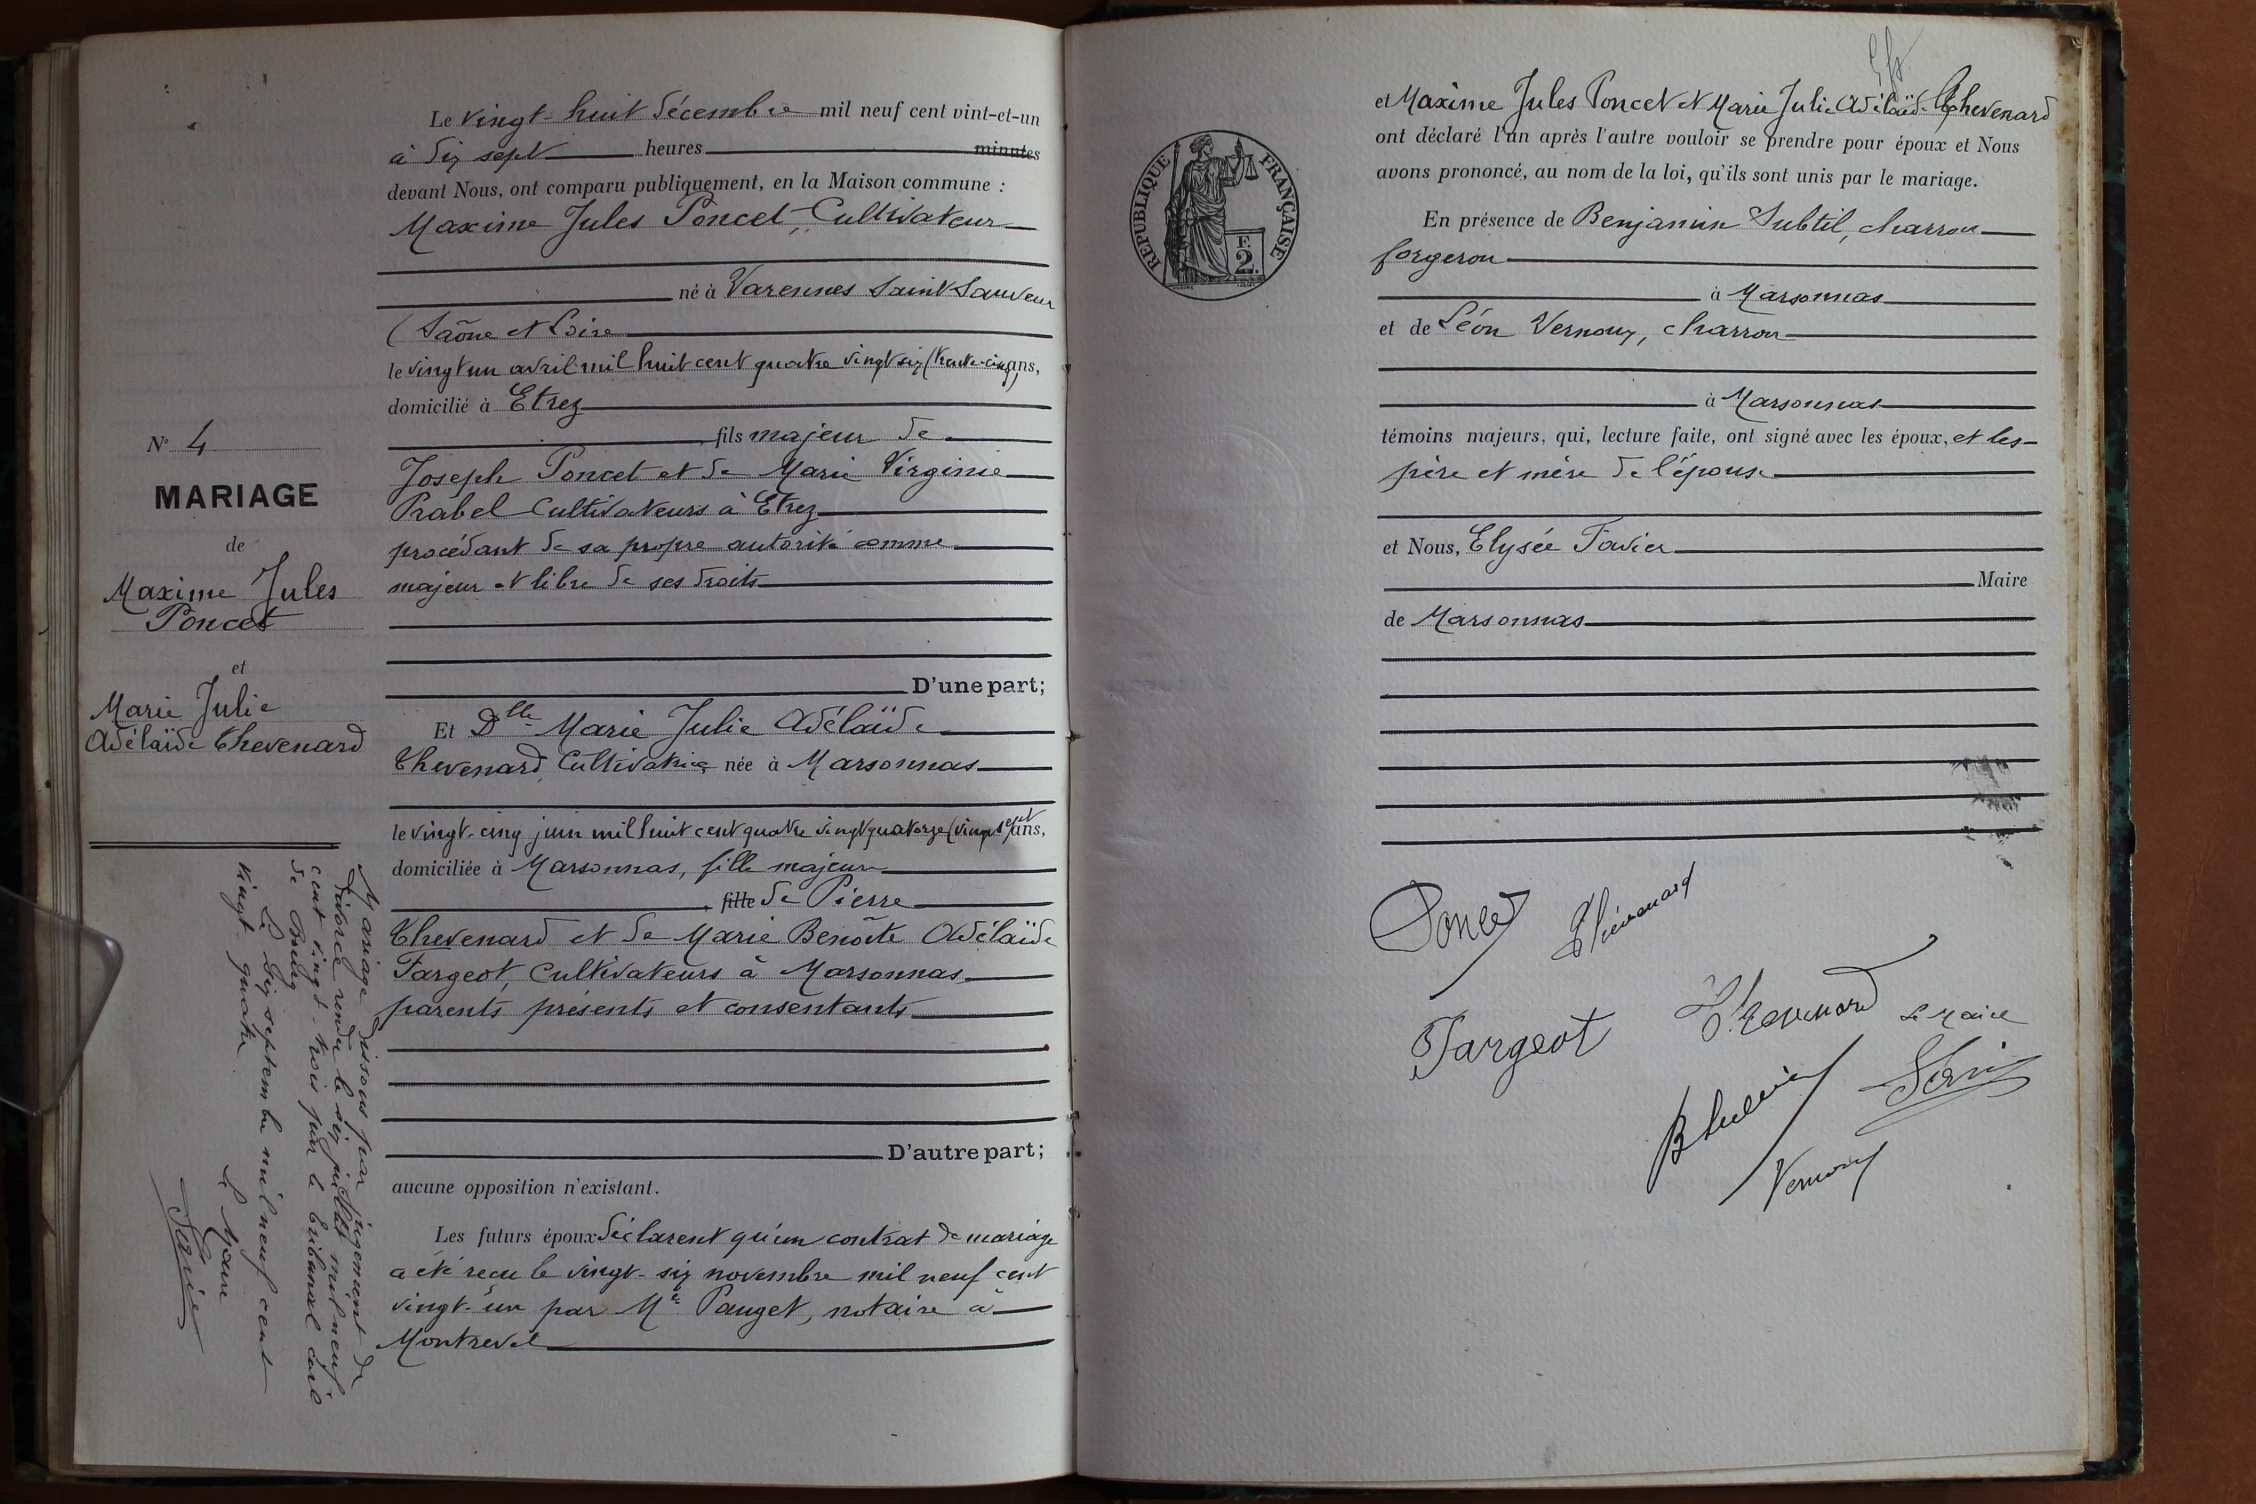 Le vingt-huit décembre mil neuf cent vint-et-un
à dix sept heures minutes
devant Nous, ont comparu publiquement, en la Maison commune :
Maxime Jules Poncet, Cultivateur
né à Varennes Saint Sauveur
(Saône et Loire
le vingt un avril mil huit cent quatre vingt six (trente-cinq) ans,
domicilié à Etrez
fils majeur de
Joseph Poncet et de Marie Virginie
Rabel Cultivateurs à Etrez
procédant de sa propre autorité comme
majeur et libre de ses droits
D'une part;
Et Dlle Marie Julie Adélaïde
Thevenard, Cultivatrice née à Marsonnas
le vingt-cinq juin mil huit cent quatre vingt quatorze (vingt sept) ans,
domiciliée à Marsonnas, fille majeure
fille de Pierre
Thevenard et de Marie Benoîte Adélaïde
Fargeot, Cultivateurs à Marsonnas
parents présents et consentants
D'autre part;
aucune opposition n'existant.
Les futurs époux déclarent qu'un contrat de mariage
a été reçu le vingt-six novembre mil neuf cent
vingt-un par Me Pauget, notaire à
Montrevel
N° 4
MARIAGE
de
Maxime Jules
Poncet
et
Marie Julie
Adélaïde Thevenard
Mariage dissous par jugement de
divorce rendu le six juillet mil neuf
cent vingt-trois par le tribunal civil
de Bourg
Le dix septembre mil neuf cent
vingt quatre
Le Maire
et Maxime Jules Poncet et Marie Julie Adélaïde Thevenard
ont déclaré l'un après l'autre vouloir se prendre pour époux et Nous
avons prononcé, au nom de la loi, qu'ils sont unis par le mariage.
En présence de Benjamin Subtil, charron
forgeron
à Marsonnas
et de Léon Vernoux, charron
à Marsonnas
témoins majeurs, qui, lecture faite, ont signé avec les époux, et les
père et mère de l'épouse
et Nous, Elysée Favier
Maire
de Marsonnas
RÉPUBLIQUE FRANÇAISE
F.
2.
Poncet
Thévenard
Fargeot
Thevenard
Le Maire
Vernoux